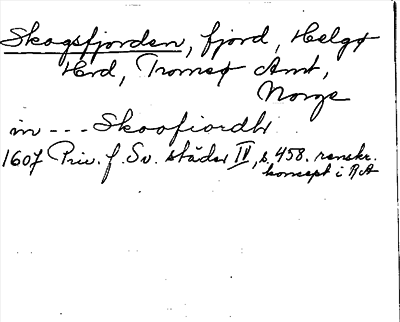 Skogsfjorden, fjord, Helgø
Hrd, Tromsø Amt,
Norge
in --- Skoofiordh
1607 Priv. f. Sv. städer IV, s. 458. renskr.
koncept i RA